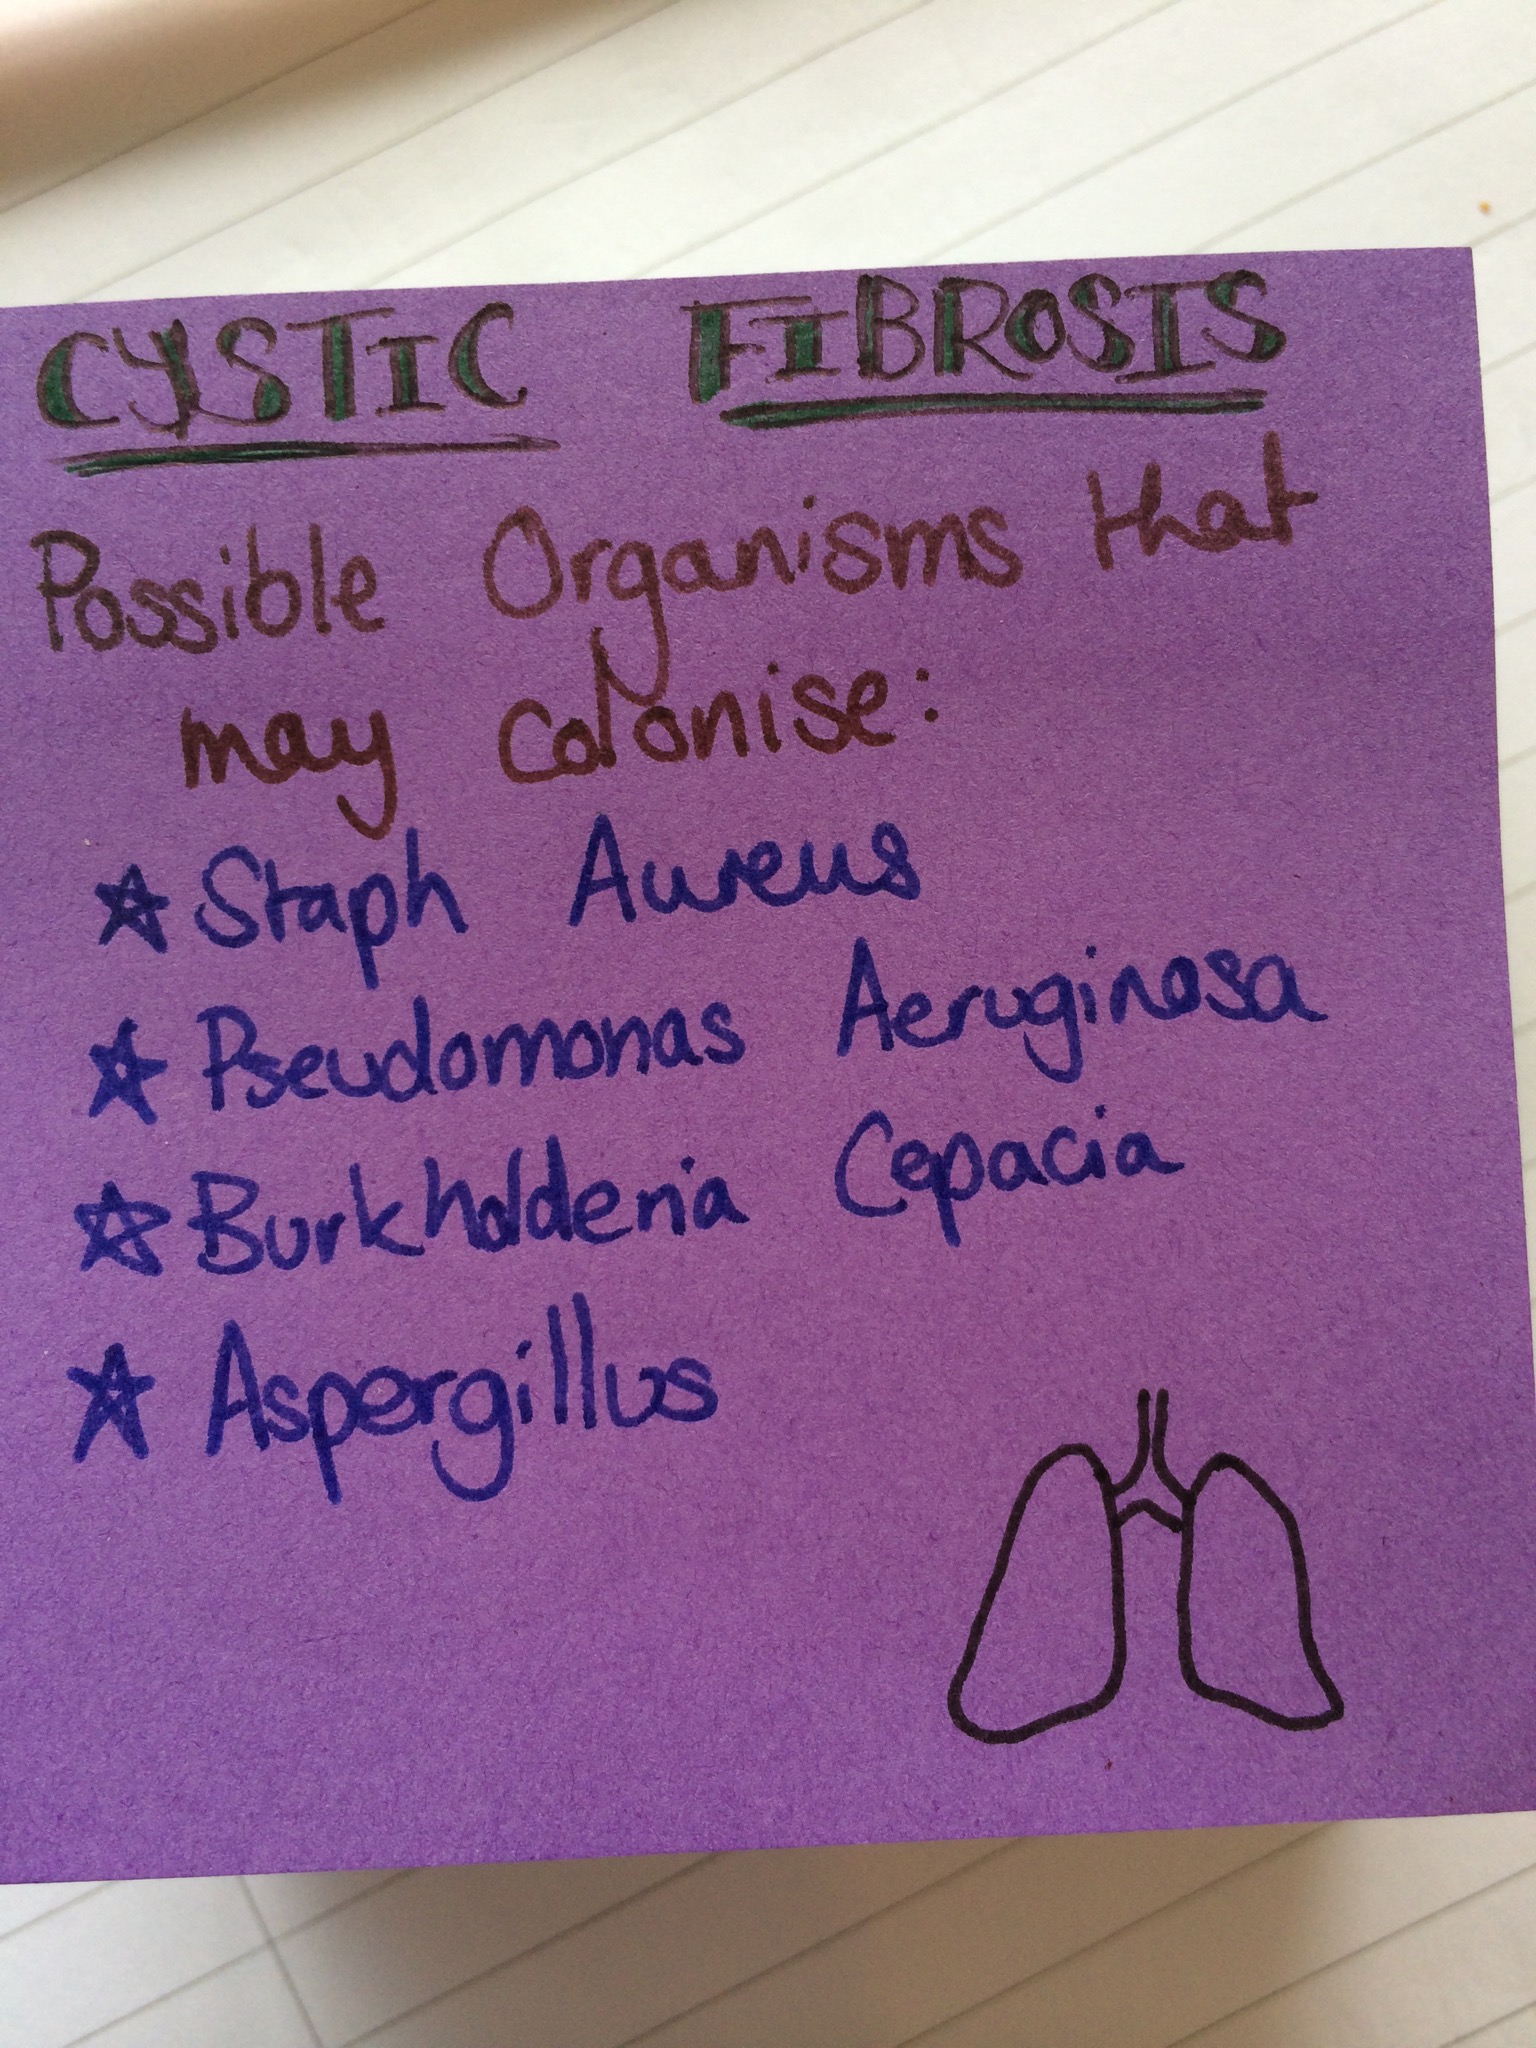 CYSTIC FIBROSIS
Possible Organisms that
may colonise:
☆ Staph Aureus
☆ Pseudomonas Aeruginosa
☆ Burkholderia Cepacia
☆ Aspergillus